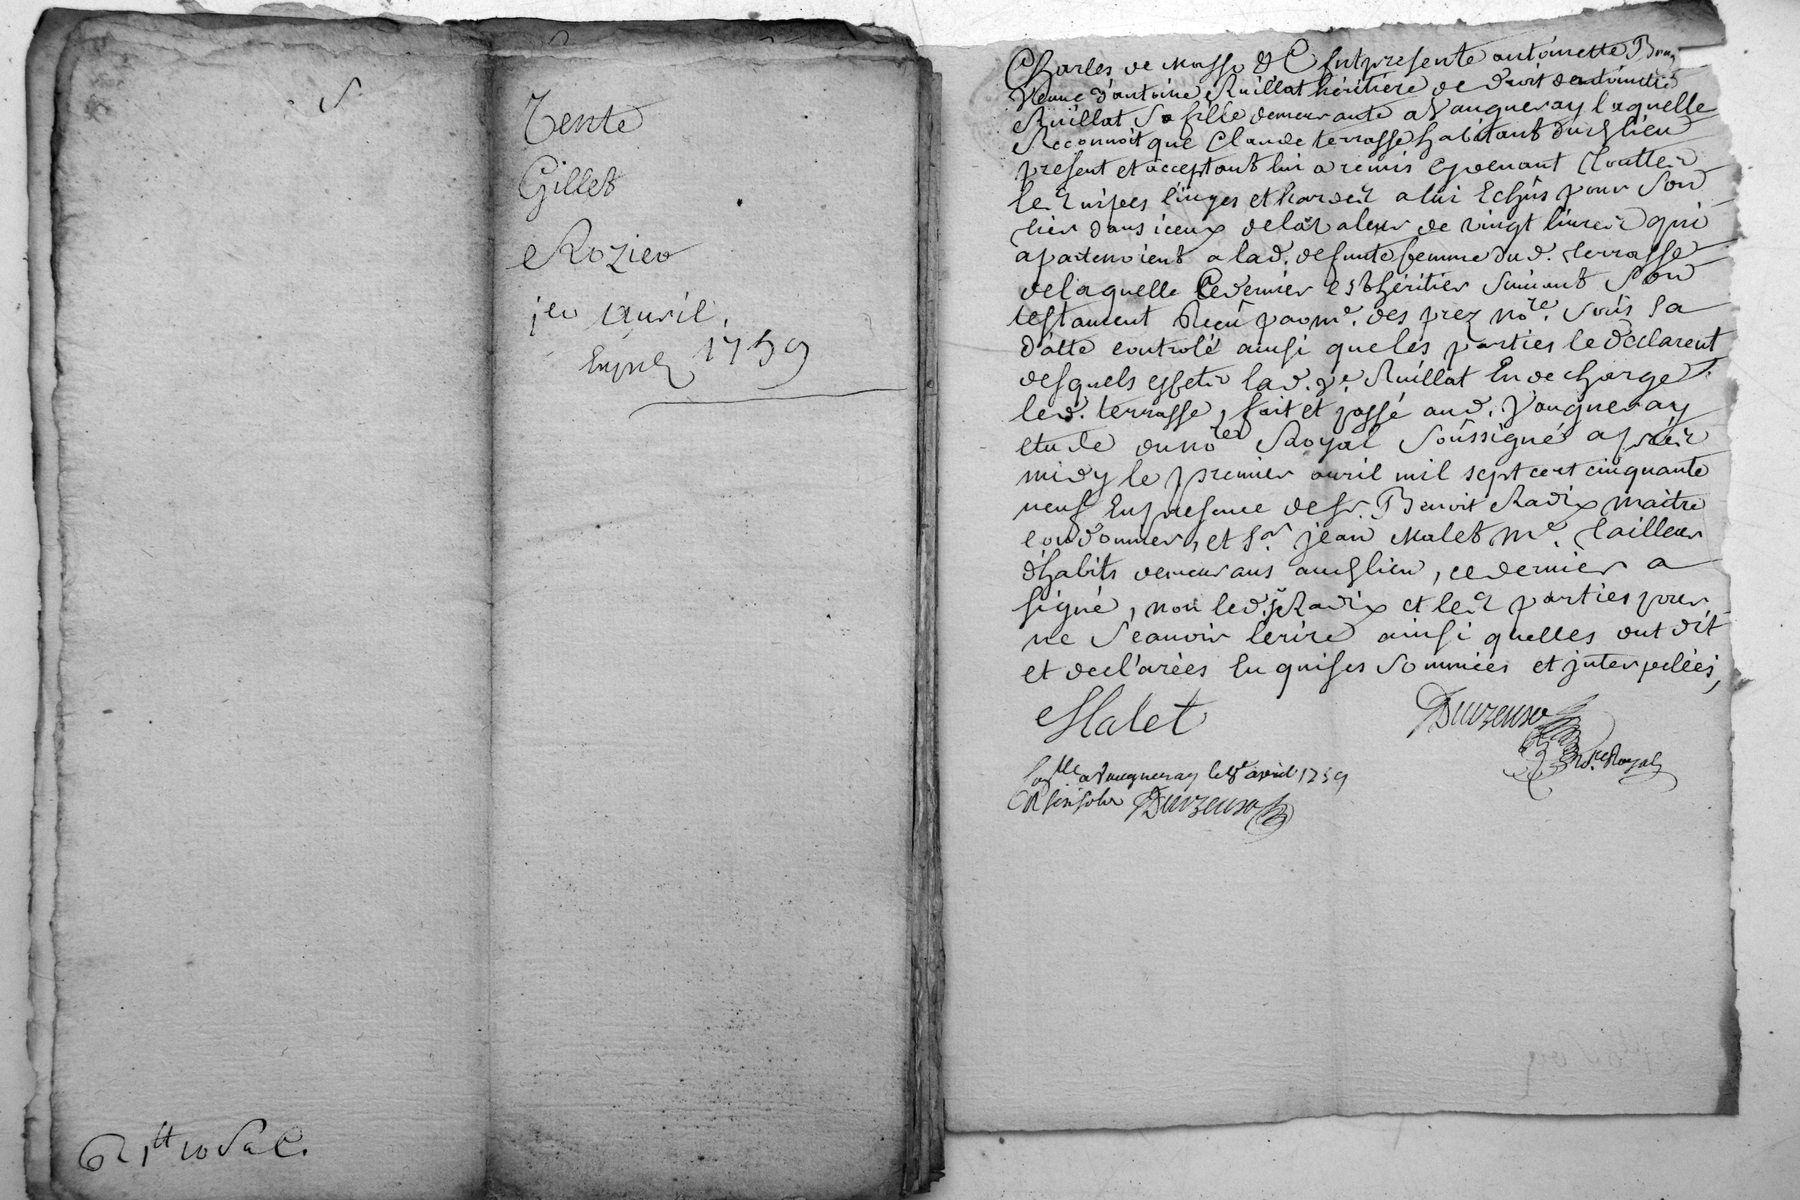 Vente
Gillet
Rozier
1er avril
1759
Charles de Masso &c fut presente antoinette
Veuve d'antoine Ruillat héritiére de droit
Ruillat Sa fille demeurante a Vaugneray laquelle
Reconnoit que Claude terrasse habitant dud lieu
présent et acceptant lui a remis cy devant touttes
les nipes linges et hardes a lui Echûs pour Son
tiers dans iceux de la valeur de vingt livres qui
apartenoient a lad. defunte femme dud. terrasse
de laquelle Ce dernier est héritier Suivant Son
testament Reçû par me. des prez nore. Soûs Sa
datte controlé ainsi que les parties le declarent
desquels effets lad. ve Ruillat En decharge
led. terrasse, fait et passé aud. Vaugneray
etude du nore Royal Soûssigné apres
midy le premier avril mil sept cent cinquante
neuf En presence de sr. Benoit Radix maitre
cordonnier, et Sr. jean Malet me. tailleur
d'habits demeurans aud lieu, ce dernier a
signé, non led. sr Radix et les parties pour
ne Sçauoir Ecrire ainsi quelles ont dit
et declarées Enquises Sommées et interpelées,
Malet
Nore Royal
a Vaugneray le 8e avril 1759